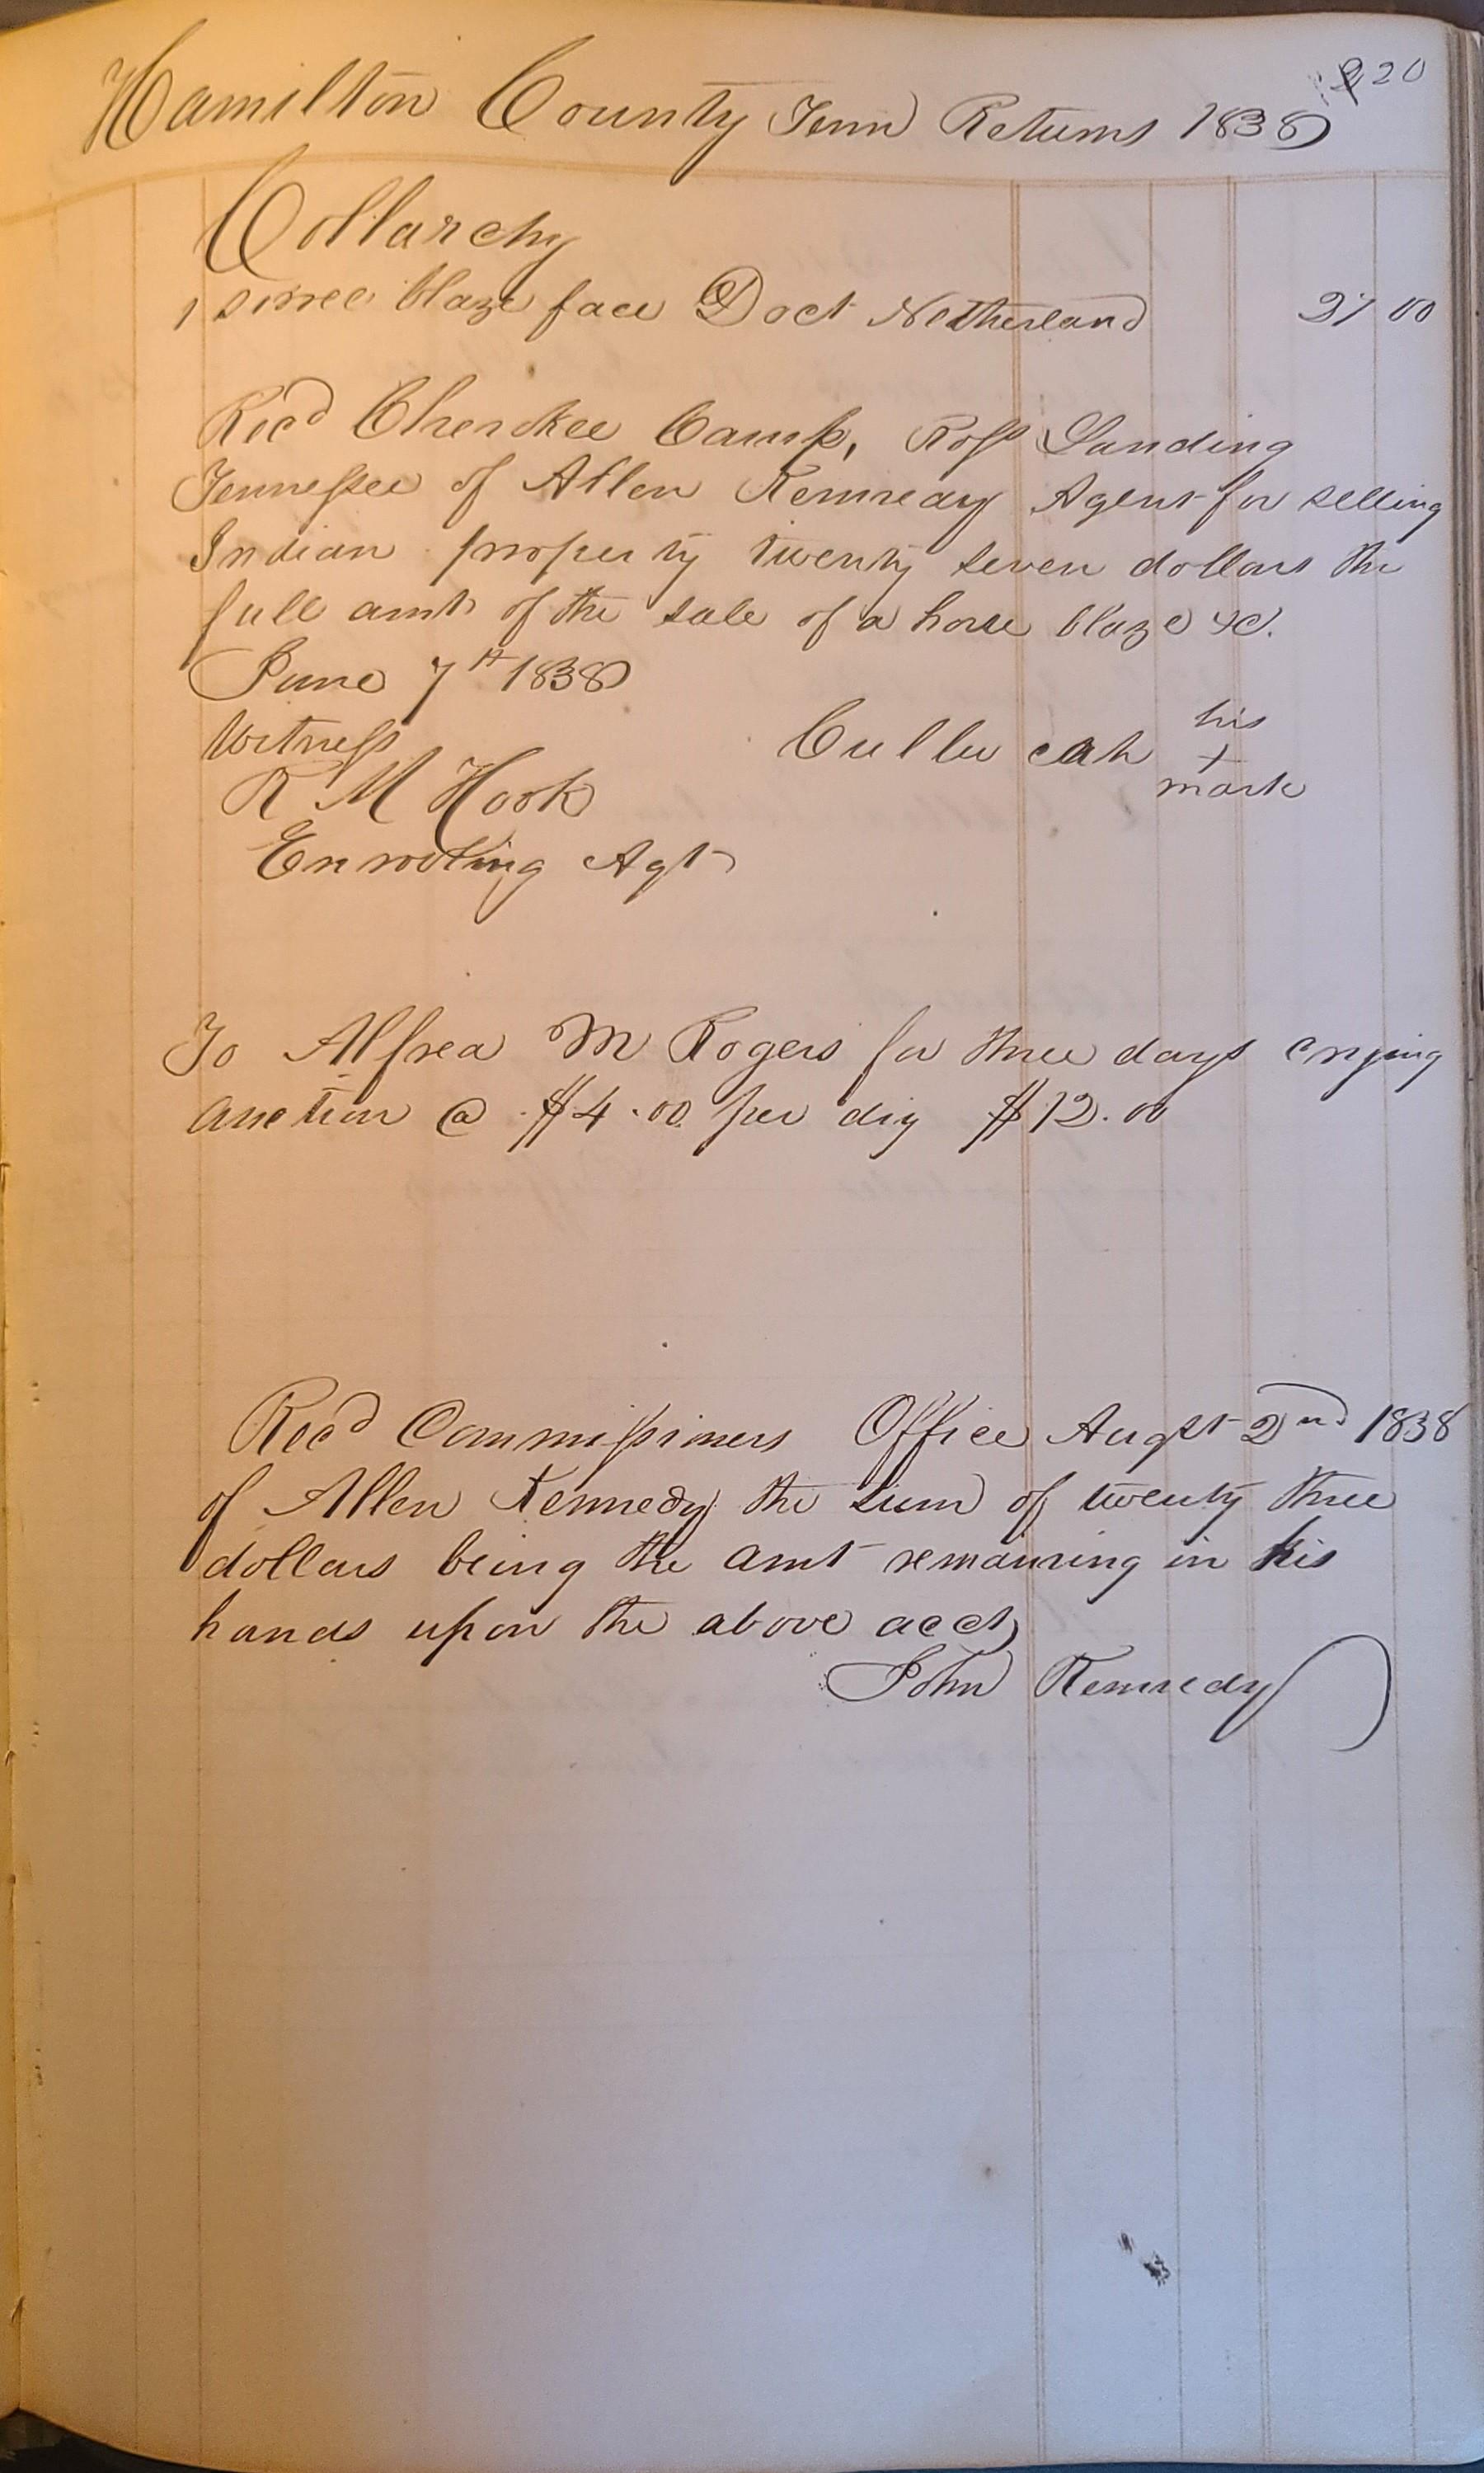 20
Hamilton County Tenn Returns 1838
Collarchy
1 sorrel blaze face Doct Netherland 27 00
Recd Cherokee Camp, Ross Landing
Tennessee of Allen Kennedy Agent for selling
Indian property twenty seven dollars the
full amt of the sale of a horse blaze &c.
June 7th 1838
Witness
his
Cullu cah +
mark
R M Hook
Enrolling Agt
To Alfred M Rogers for three days crying
auction @ $4.00 per day $12.00
Recd Commissioners Office Augst 2nd 1838
of Allen Kennedy the sum of twenty three
dollars being the amt remaining in his
hands upon the above acct
John Kennedy